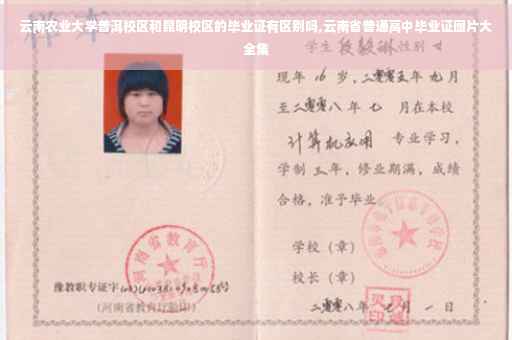 云南农业大学普洱校区和昆明校区的毕业证有区别吗,云南省普通高中毕业证图片大
全集
学生 性别 女
现年 16 岁,二零零五年 九 月
至二零零八 年 七 月在本校
计算机应用 专业学习,
学制 三 年,修业期满,成绩
合格,准予毕业
学校(章)
校长(章)
二零零八年 月 一 日
河南省教育厅
豫教职专证字
(河南省教育厅验印)